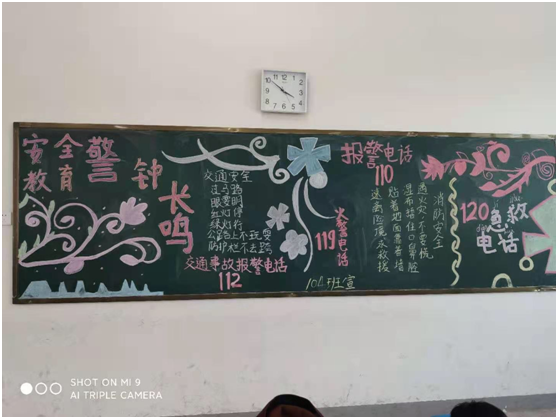 安全警钟长鸣
教育
交通安全
走马路
眼要明
红灯停
绿灯行
公路上不玩耍
防护栏不去跨
交通事故报警电话
112
119
火警电话
报警电话
110
消防安全
遇火灾不要慌
湿布捂住口鼻腔
贴着地面靠着墙
逃离险境求救援
120
急救
电话
104班宣
SHOT ON MI 9
AI TRIPLE CAMERA